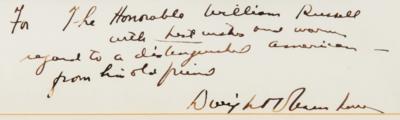 For The Honorable William Russell
with best wishes and warm
regard to a distinguished american —
from his old friend
Dwight D Eisenhower